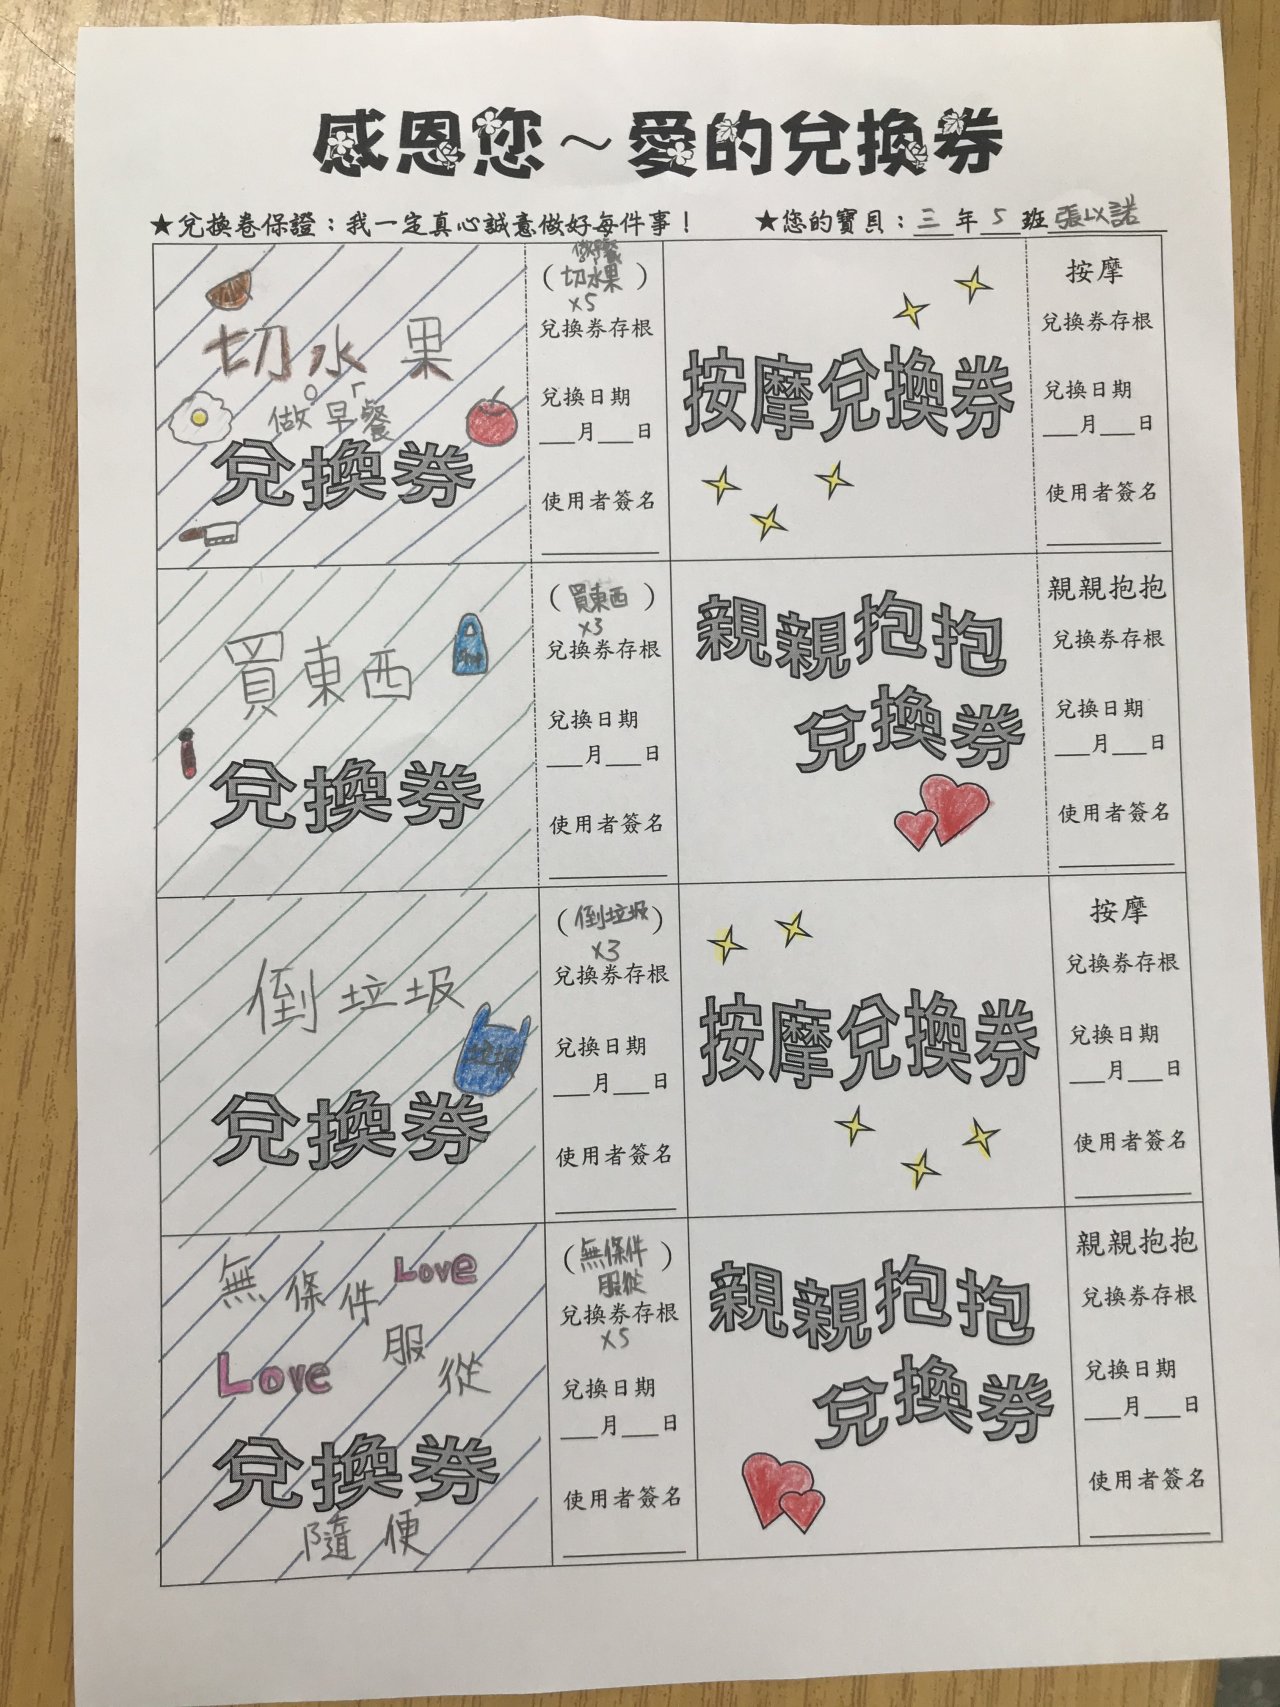 感恩您～愛的兌換券
★兌換卷保證：我一定真心誠意做好每件事！
★您的寶貝：三年5班張以諾
切水果
做早餐
兌換券
做早餐
（切水果）
x5
兌換券存根
兌換日期
___月___日
使用者簽名
按摩兌換券
按摩
兌換券存根
兌換日期
___月___日
使用者簽名
買東西
兌換券
（買東西）
x3
兌換券存根
兌換日期
___月___日
使用者簽名
親親抱抱
兌換券
親親抱抱
兌換券存根
兌換日期
___月___日
使用者簽名
倒垃圾
垃圾
兌換券
（倒垃圾）
x3
兌換券存根
兌換日期
___月___日
使用者簽名
按摩兌換券
按摩
兌換券存根
兌換日期
___月___日
使用者簽名
無條件
Love
服從
Love
兌換券
隨便
（無條件）
服從
兌換券存根
x5
兌換日期
___月___日
使用者簽名
親親抱抱
兌換券
親親抱抱
兌換券存根
兌換日期
___月___日
使用者簽名